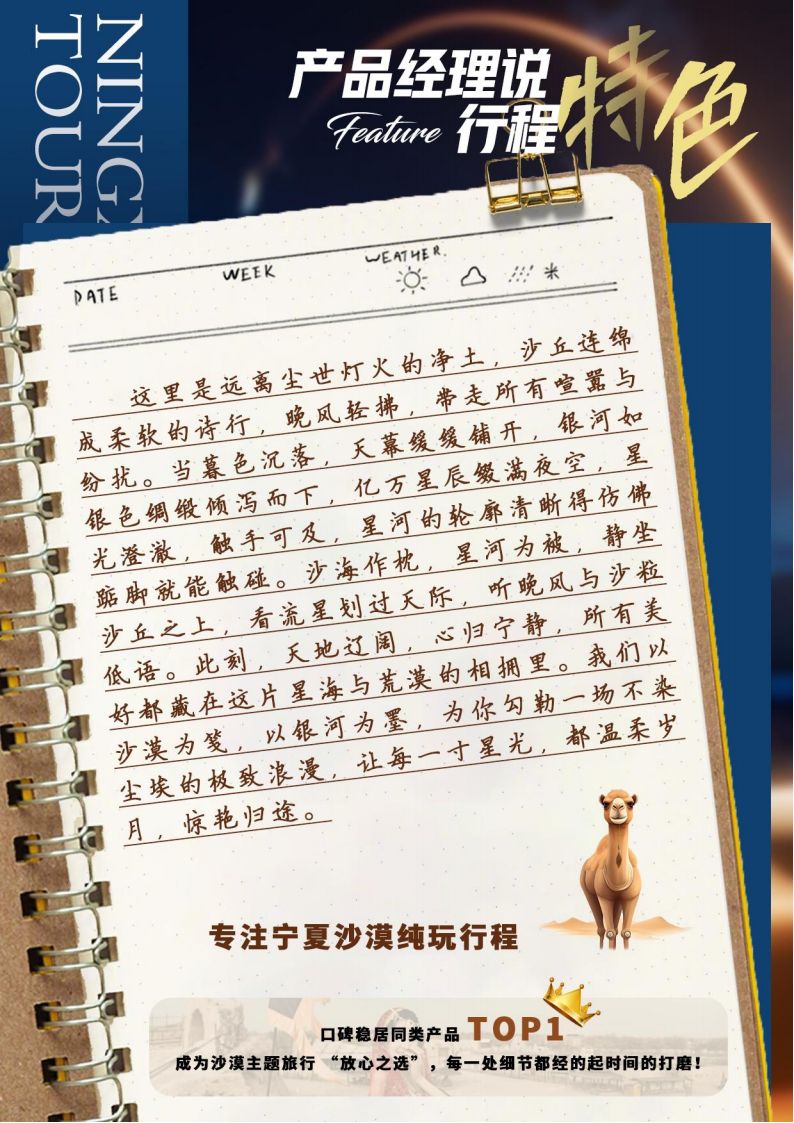 NINGX
TOUR
产品经理说
Feature 行程 特色
DATE WEEK WEATHER.
这里是远离尘世灯火的净土，沙丘连绵
成柔软的诗行，晚风轻拂，带走所有喧嚣与
纷扰。当暮色沉落，天幕缓缓铺开，银河如
银色绸缎倾泻而下，亿万星辰缀满夜空，星
光澄澈，触手可及，星河的轮廓清晰得仿佛
踮脚就能触碰。沙海作枕，星河为被，静坐
沙丘之上，看流星划过天际，听晚风与沙粒
低语。此刻，天地辽阔，心归宁静，所有美
好都藏在这片星海与荒漠的相拥里。我们以
沙漠为笺，以银河为墨，为你勾勒一场不染
尘埃的极致浪漫，让每一寸星光，都温柔岁
月，惊艳归途。
专注宁夏沙漠纯玩行程
口碑稳居同类产品 TOP1
成为沙漠主题旅行 “放心之选”，每一处细节都经的起时间的打磨！